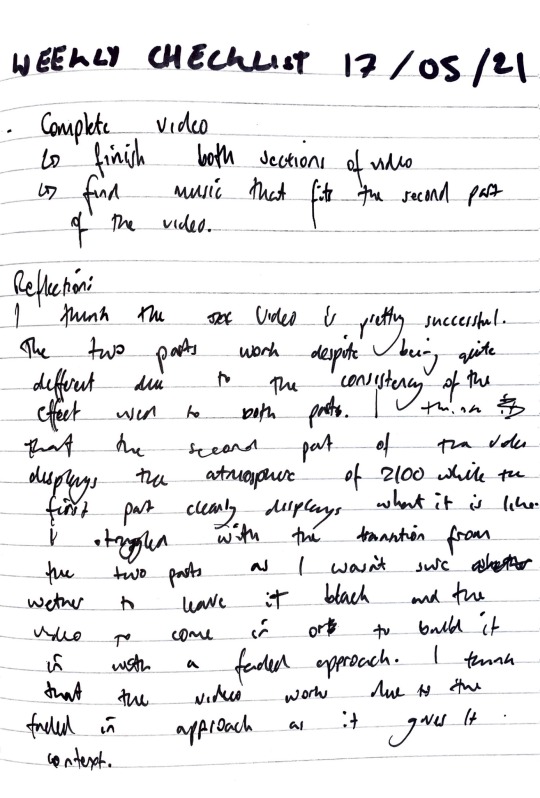 WEEKLY CHECKLIST 17/05/21
. Complete video
↳ finish both sections of video
↳ find music that fits the second part
of the video.
Reflection:
I think the video is pretty successful.
The two parts work despite being quite
different due to the consistency of the
effect used to both parts. I think
that the second part of the video
displays the atmosphere of 2100 while the
first part clearly displays what it is like.
I struggled with the transition from
the two parts as I wasn't sure
wether to leave it black and the
video to come in or to build it
in with a faded approach. I think
that the video works due to the
faded in approach as it gives it
context.